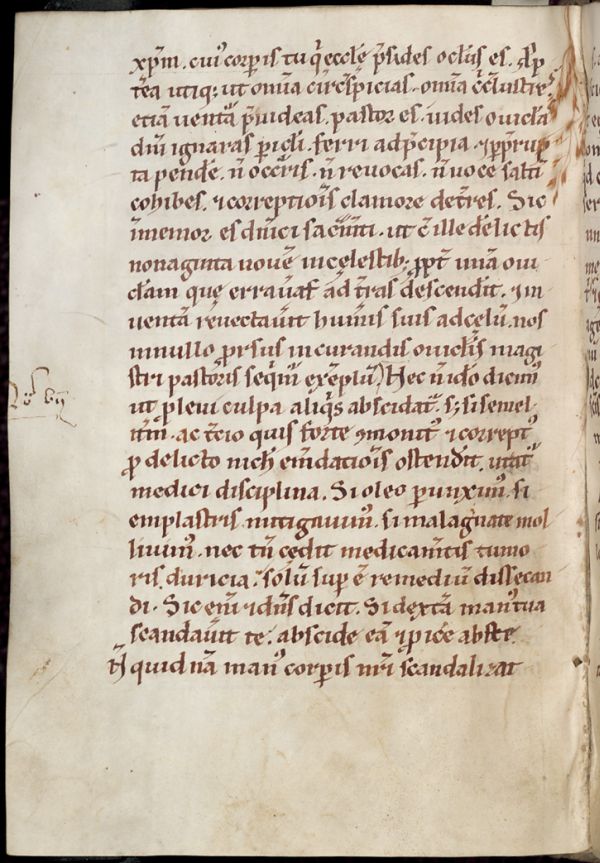 xp̄m. cui' corꝑis tu q̇ ecclę p̄sides ocl'us es. p̄p
tea utiq; ut om̄ia circ̄spicias. om̄ia c̄clustres
etiā uentā p̄uideas. pastor es. uides ouicl'a
dn̄i ignaras ꝑicl'i. ferri ad p̄cipia. ⁊ p̄rup
ta pende. n̄ occ̄ris. n̄ reuocas. n̄ uoce saltī
cohibes. ⁊ correptiōis clamore det̄res. Sic
īmemor es dīuici sac̄mti. ut c̄ ille delictis
nonaginta nouē in cęlestib; ꝓpt̄ unā oui
clam quę errauat ad t̄ras descendit. ⁊ in
uentā reuectauit hum̄is suis ad cęlū. nos
in nullo ꝓrsus in curandis ouicl'is magi
stri pastoris seqm̄ exēplū. Hec n̄ ido dicim'
ut ꝓ leui culpa aliq̇s abscidat'. s; si semel
itm̄. ac tcio quis forte ꝯmonit' ⁊ correpť
ꝓ delicto nich' em̄datiōis ostendit. utat'
medici disciplina. Si oleo ꝑunxim'. si
emplastris mitigauim'. si malagmate mol
liuim'. nec tn̄ cedit medicam̄tis tumo
ris duricia. solū suꝑ ē remediū dissecan
di. Sic enī ⁊ dn̄s dicit. Si dextā man' tua
scandauit te. abscide eā ⁊ ꝓice abs te.
Nūquid nā man' corꝑis nr̄i scandalizat